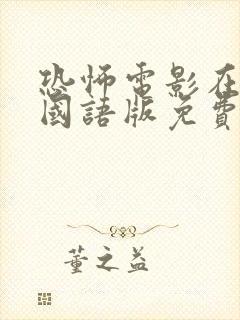 恐怖電影在
國語版免費
董之益